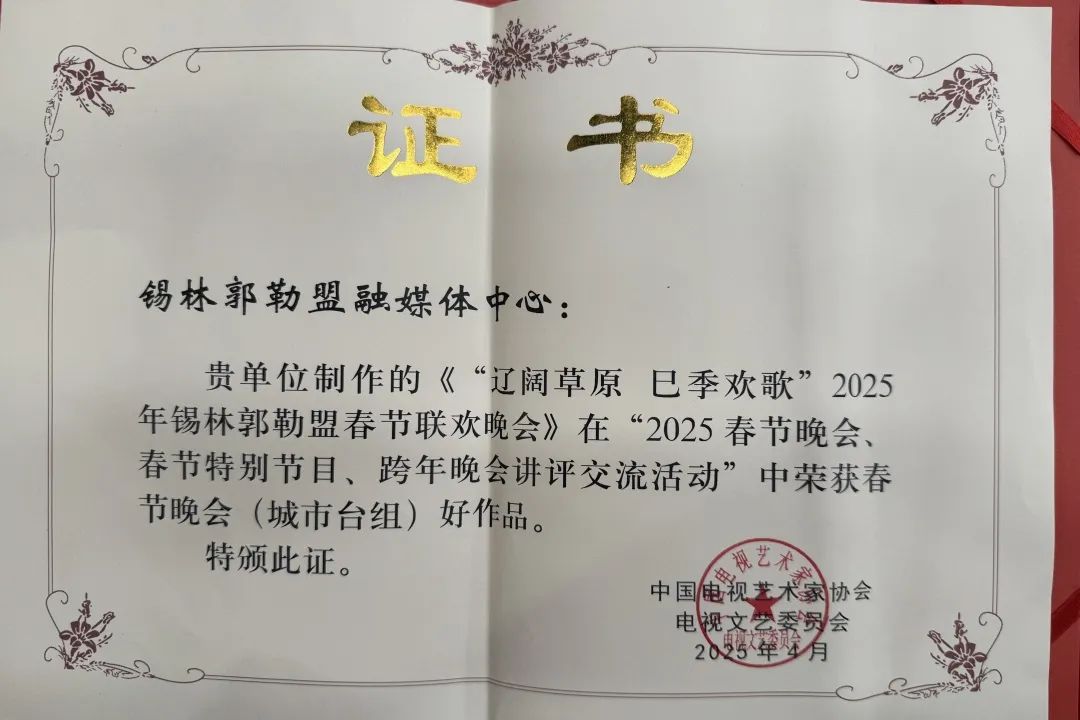 证书
锡林郭勒盟融媒体中心：
贵单位制作的《“辽阔草原 巳季欢歌”2025
年锡林郭勒盟春节联欢晚会》在“2025春节晚会、
春节特别节目、跨年晚会讲评交流活动”中荣获春
节晚会（城市台组）好作品。
特颁此证。
中国电视艺术家协会
电视文艺委员会
2025年4月
中国电视艺术家协会
电视文艺委员会